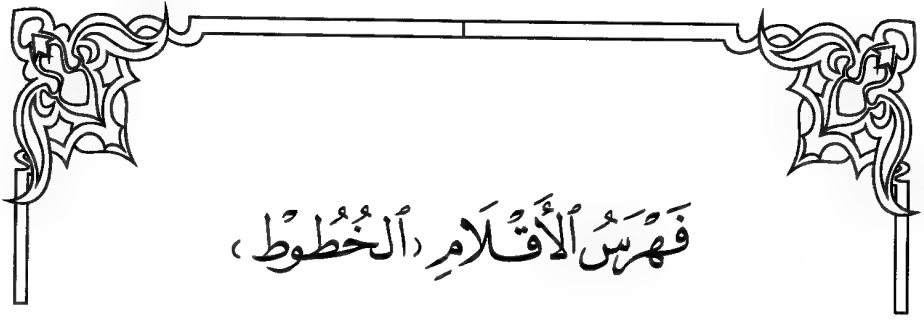 فَهْرَسُ ٱلْأَقْلَامِ (ٱلْخُطُوْط)